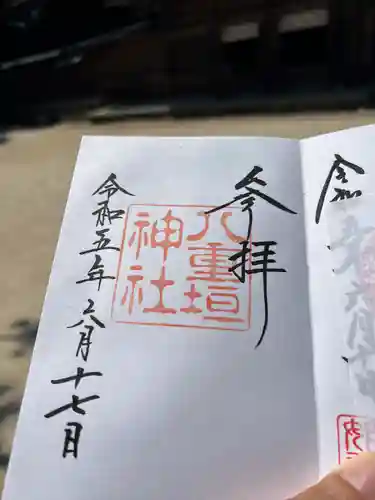 令和
参拝
八重垣
神社
令和五年六月十七日